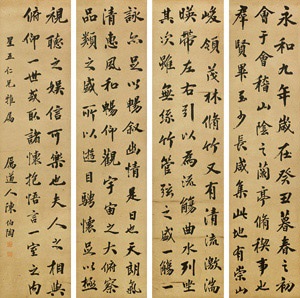 永和九年歲在癸丑暮春之初
會于會稽山陰之蘭亭脩稧事也
群賢畢至少長咸集此地有崇山
峻領茂林脩竹又有清流激湍
映帶左右引以為流觴曲水列坐
其次雖無絲竹管弦之盛一觴一
詠亦足以暢敘幽情是日也天朗氣
清惠風和暢仰觀宇宙之大俯察
品類之盛所以遊目騁懷足以極
視聽之娛信可樂也夫人之相與
俯仰一世或取諸懷抱悟言一室之內
星五仁兄雅屬
道人陳伯陶